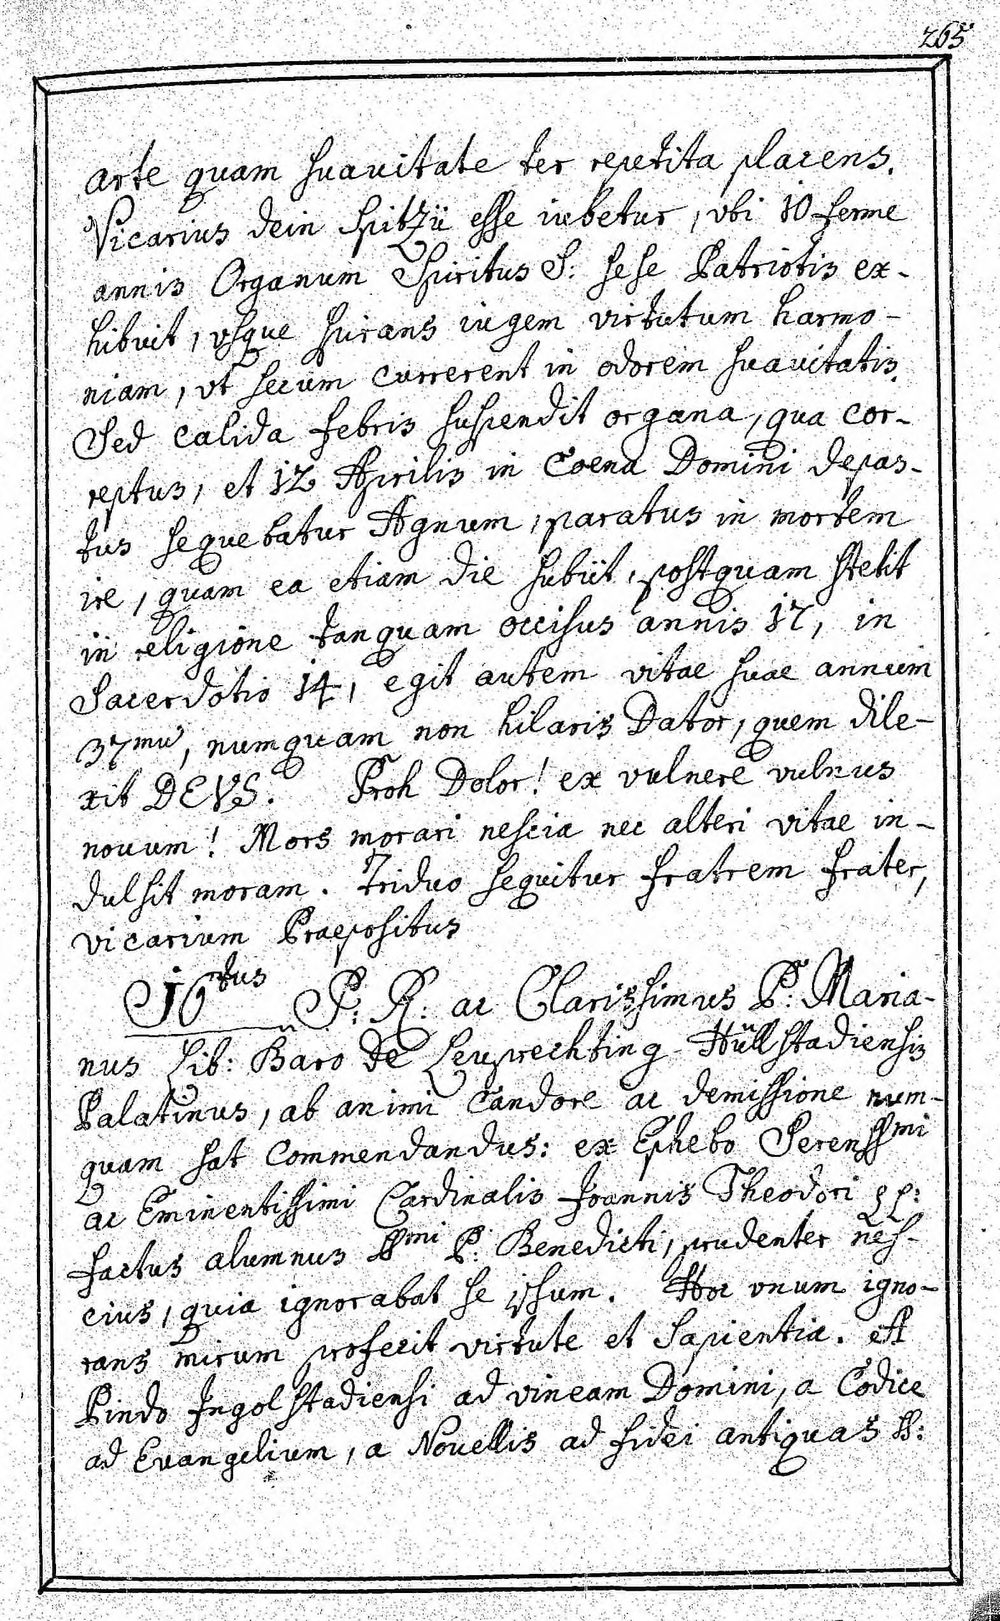 265
arte quam suauitate ter repetita placens.
Vicarius dein Spitzÿ esse iubetur, vbi 10 ferme
annis Organum Spiritus S: sese Patriotis ex-
hibuit, vsque spirans iugem virtutum harmo-
niam, vt secum currerent in odorem suauitatis.
Sed calida febris suspendit organa, qua cor-
reptus, et 12 Aprilis in Coena Domini depas-
tus sequebatur Agnum, paratus in mortem
ire, quam ea etiam die subÿt, postquam stetit
in religione tanquam occisus annis 17, in
Sacerdotio 14, egit autem vitae suae annum
37mu, numquam non hilaris Dator, quem dile-
xit DEVS. Proh Dolor! ex vulnere vulnus
nouum! Mors morari nescia nec alteri vitae in-
dulsit moram. Triduo sequitur fratrem frater,
vicarium Praepositus
16tus P: R: ac Clarissimus P: Maria-
nus Lib: Baro de Leuprechting-Hüllstadiensis
Palatinus, ab animi Candore ac demissione num-
quam sat Commendandus: ex Ephebo Serenssmi
ac Eminentissimi Cardinalis Joannis Theodori
factus alumnus SSmi P: Benedicti, prudenter nes-
cius, quia ignorabat se ipsum. Hoc vnum igno-
rans mirum profecit virtute et Sapientia. A
Pindo Ingolstadiensi ad vineam Domini, a Codice
ad Euangelium, a Nouellis ad fidei antiquas SS: